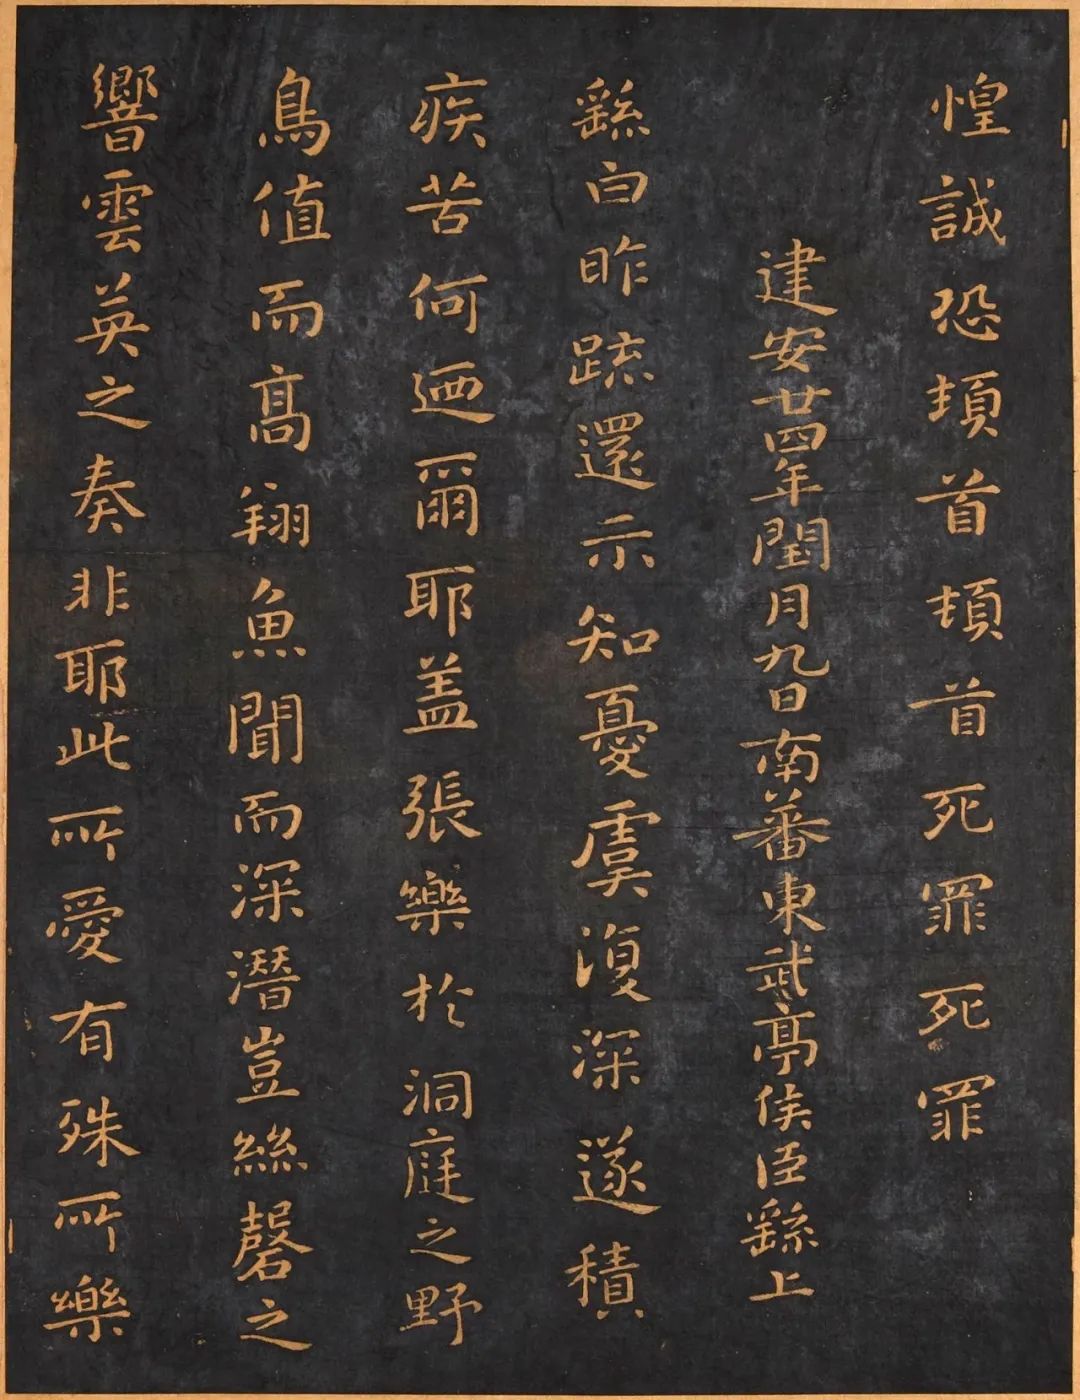 惶誠恐頓首頓首死罪死罪
建安廿四年閏月九日南蕃東武亭侯臣繇上
繇白昨疏還示知憂虞復深遂積
疾苦何迺爾耶盖張樂於洞庭之野
鳥值而高翔魚聞而深潛豈絲磬之
響雲英之奏非耶此所愛有殊所樂